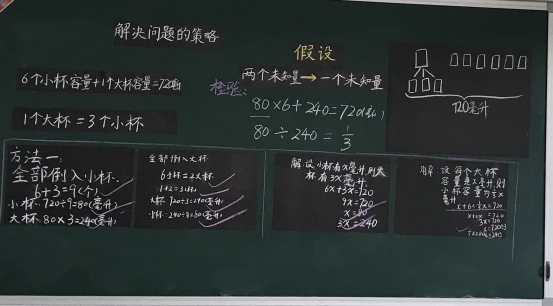 解决问题的策略
假设
两个未知量→一个未知量
6个小杯容量+1个大杯容量=720毫升
1个大杯=3个小杯
检验:
80×6+240=720(毫升)
80÷240=1/3
720毫升
方法一:
全部倒入小杯.
6+3=9(个)
小杯:720÷9=80(毫升)
大杯:80×3=240(毫升)
全部倒入大杯
6小杯=2大杯
1+2=3(杯)
大杯:720÷3=240(毫升)
小杯:240÷3=80(毫升)
解:设小杯有x毫升,则大
杯有3x毫升.
6x+3x=720
9x=720
x=80
3x=240
解:设每个大杯
容量是x毫升,则
小杯容量为1/3x
毫升
x+6×1/3x=720
x+2x=720
3x=720